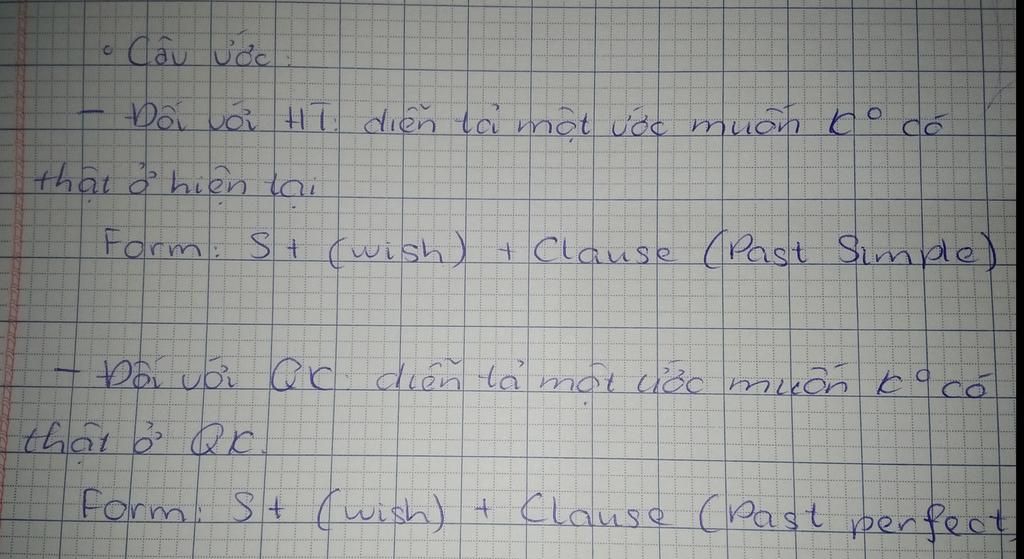 ° Câu ước:
- Đối với HT: diễn tả một ước muốn k° có
thật ở hiện tại
Form: S + (wish) + Clause (Past Simple)
- Đối với QK: diễn tả một ước muốn k° có
thật ở QK.
Form: S + (wish) + Clause (Past perfect